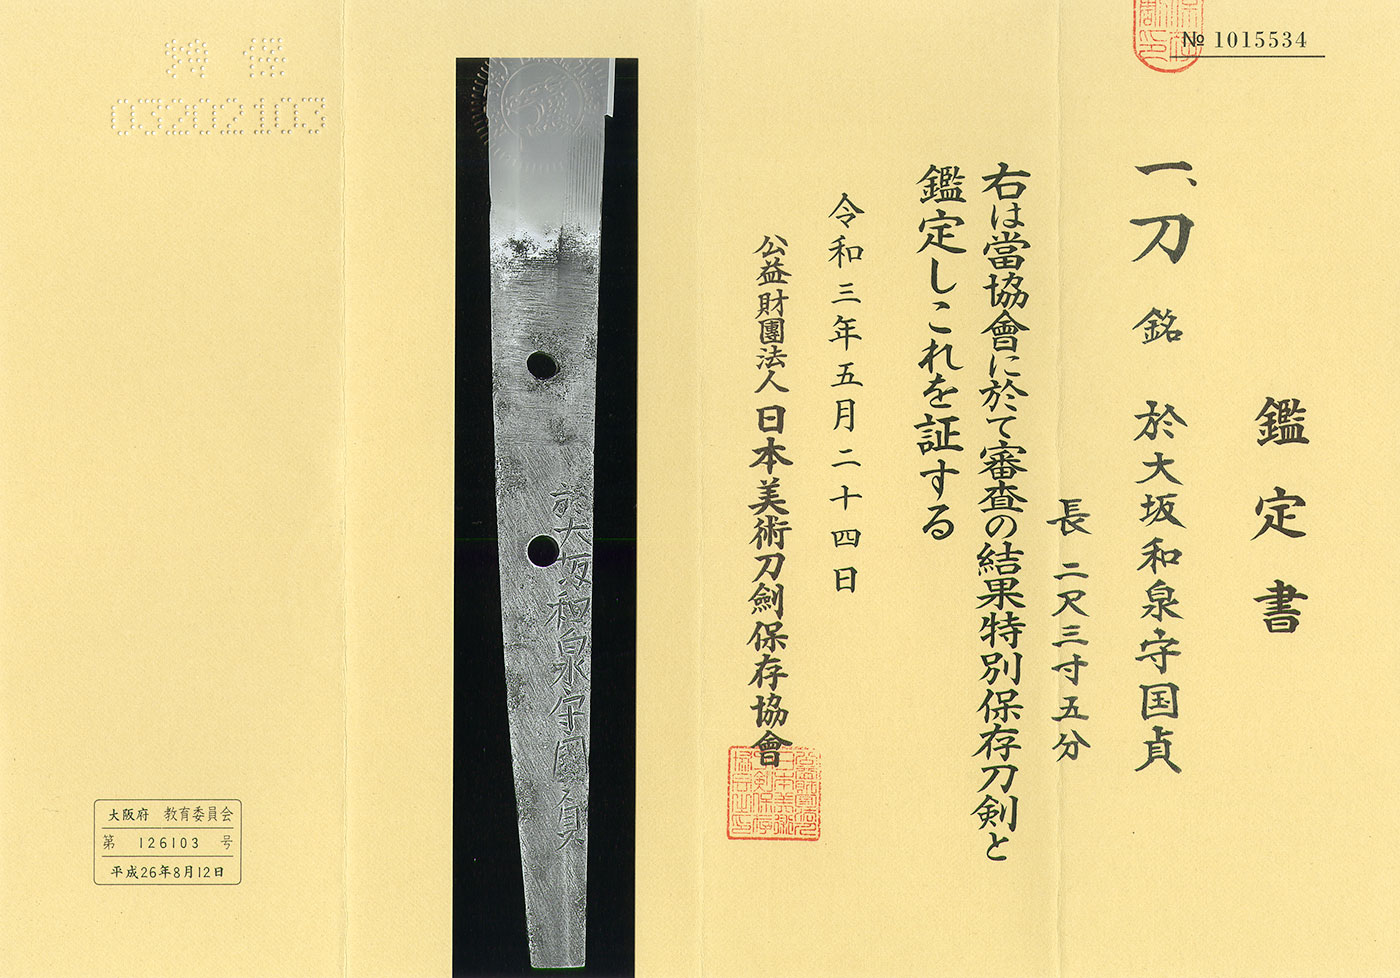 № 1015534
鑑定書
一、刀 銘 於大坂和泉守国貞
長 二尺三寸五分
右は當協會に於て審査の結果特別保存刀剣と
鑑定しこれを証する
令和三年五月二十四日
公益財團法人 日本美術刀劍保存協會
於大坂和泉守國貞
特保
03202103
大阪府 教育委員会
第 126103 号
平成26年8月12日